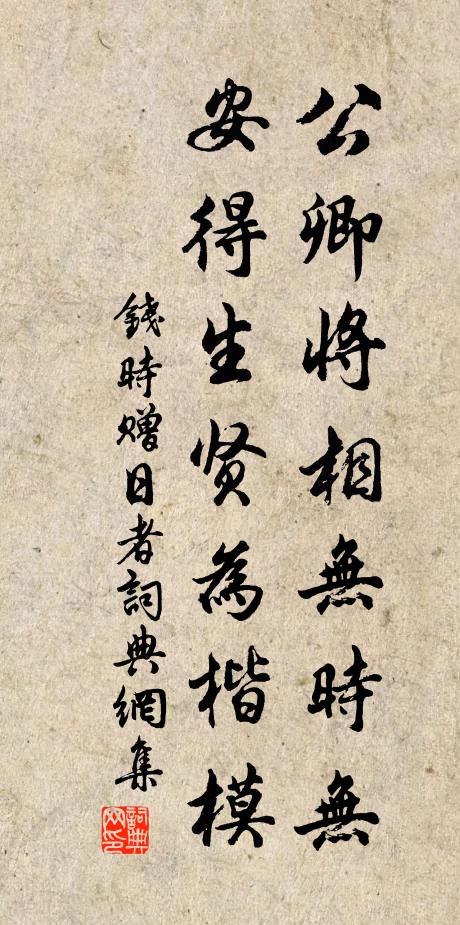 公卿將相無時無
安得生贤為楷模
錢時赠日者詞典網集
詞典
网印